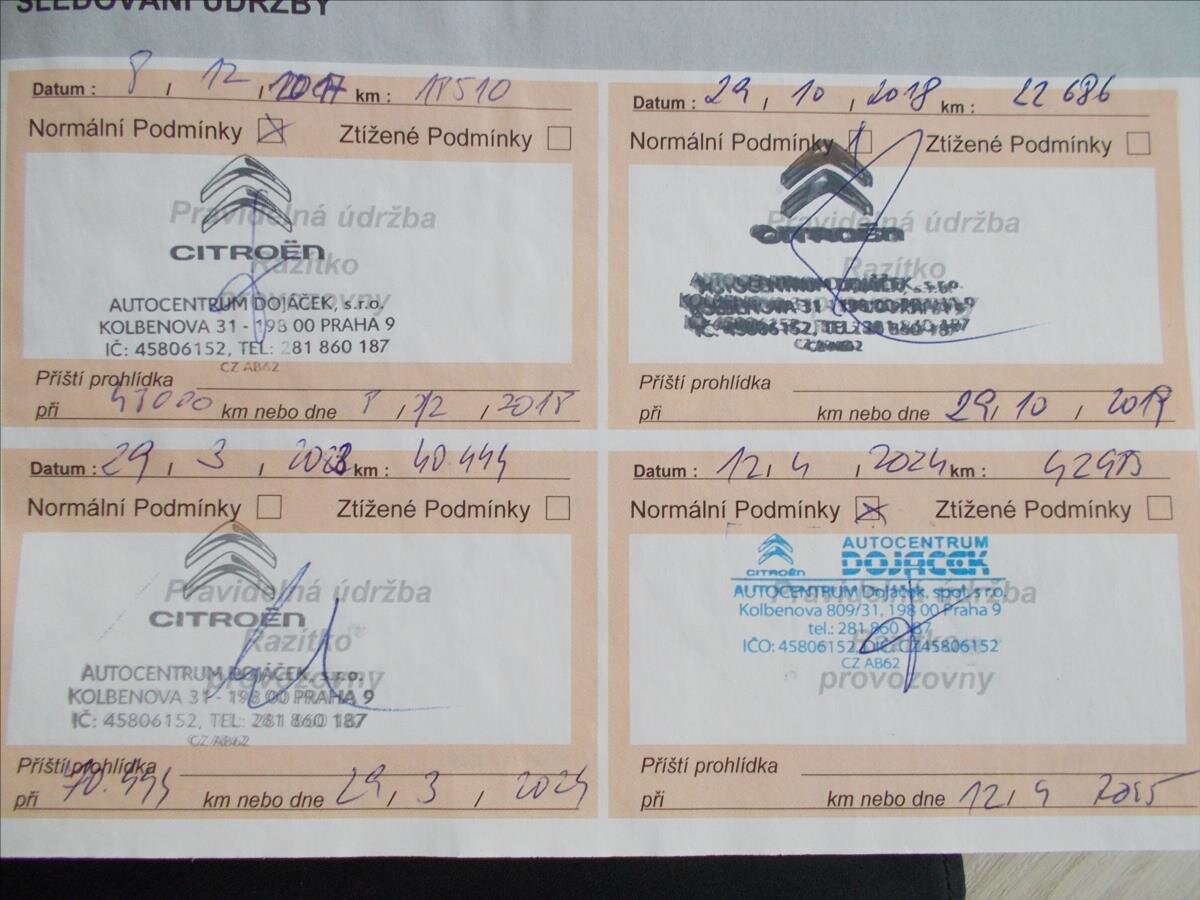 SLEDOVÁNÍ ÚDRŽBY
Datum : 8 / 12 / 2017 km : 18510
Normální Podmínky Ztížené Podmínky
Pravidelná údržba
CITROËN
Razítko
provozovny
AUTOCENTRUM DOJÁČEK, s.r.o.
KOLBENOVA 31 - 198 00 PRAHA 9
IČ: 45806152, TEL: 281 860 187
CZ AB62
Příští prohlídka
při km nebo dne 8 / 12 / 2018
Datum : 29 / 10 / 2018 km : 22 686
Normální Podmínky Ztížené Podmínky
Pravidelná údržba
CITROËN
Razítko
AUTOCENTRUM DOJÁČEK, s.r.o.
KOLBENOVA 31 - 198 00 PRAHA 9
IČ: 45806152, TEL: 281 860 187
CZ AB62
Příští prohlídka
při km nebo dne 29 / 10 / 2019
Datum : 29 / 3 / 2023 km : 40.444
Normální Podmínky Ztížené Podmínky
Pravidelná údržba
CITROËN
Razítko
AUTOCENTRUM DOJÁČEK, s.r.o.
KOLBENOVA 31 - 198 00 PRAHA 9
IČ: 45806152, TEL: 281 860 187
CZ AB62
Příští prohlídka
při 70.444 km nebo dne 29 / 3 / 2024
Datum : 12 / 4 / 2024 km :
Normální Podmínky Ztížené Podmínky
AUTOCENTRUM
CITROËN DOJÁČEK
Pravidelná údržba
AUTOCENTRUM Dojáček, spol. s r.o.
Kolbenova 809/31, 198 00 Praha 9
tel.: 281 860 187
Razítko
IČO: 45806152, DIČ: CZ45806152
CZ AB62
provozovny
Příští prohlídka
při km nebo dne 12 / 4 2025